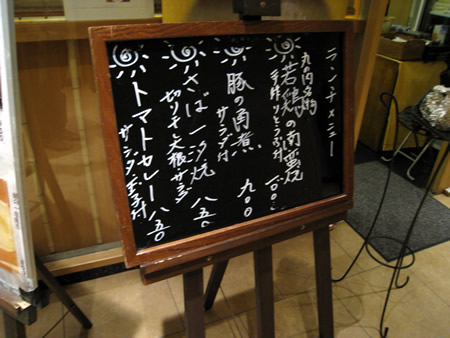 ランチメニュー
若鶏の南蛮焼
手作りとうふ付
豚の角煮
サラダ付
九〇〇
さば一汐焼
切り干大根サラダ
八五〇
トマトカレー
サラダ
八五〇